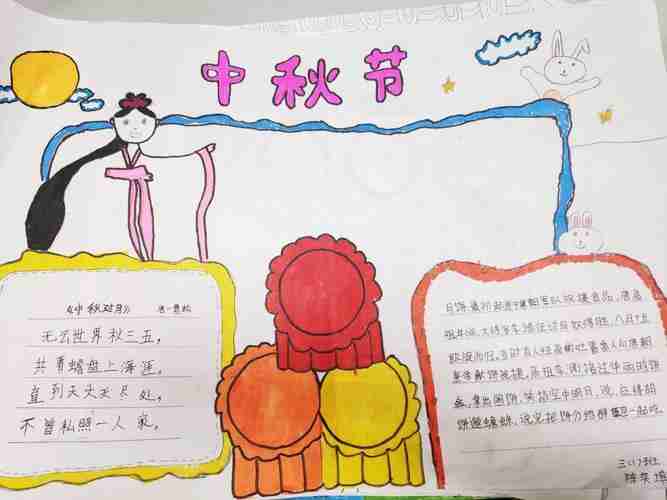 中秋节
《中秋对月》 唐-曹松
无云世界秋三五，
共看蟾盘上海涯。
直到天头天尽处，
不曾私照一人家。
月饼最初起源于唐朝军队祝捷食品，唐高
祖年间，大将军李靖征讨匈奴得胜，八月十五
凯旋而归。当时有人经商的吐鲁番人向唐朝
皇帝献饼祝捷，高祖李渊接过华丽的饼
盒，拿出圆饼，笑指空中明月，说，应将胡
饼邀蟾蜍，说完把饼分给群臣一起吃。
三(7)班
陈奕